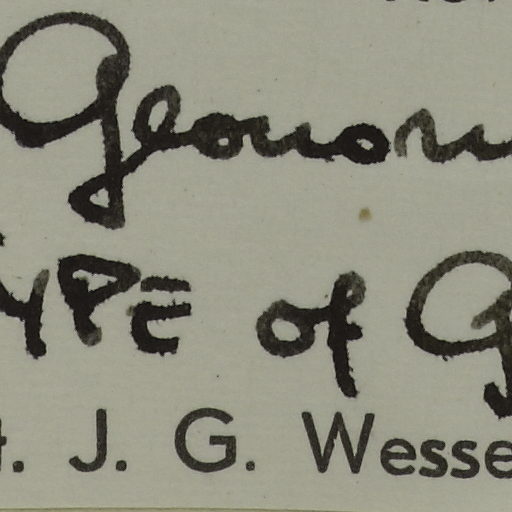 Geonom
YPE of G
t. J. G. Wesse